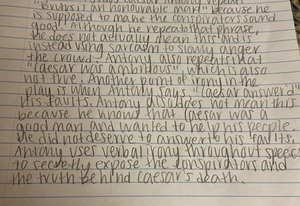 "Brutus is an honorable man" because he
is supposed to make the conspirators sound
good. Although he repeats that phrase,
he does not actually mean this and is
instead using sarcasm to slowly anger
the crowd. Antony also repeats that
"Caesar was ambitious", which is also
not true. Another point of irony in the
play is when Antony says "Caesar answer'd"
his faults. Antony also does not mean this
because he knows that Caesar was a
good man and wanted to help his people.
He did not deserve to answer to his faults.
Antony uses verbal irony throughout speech
to secretly expose the conspirators and
the truth behind Caesar's death.